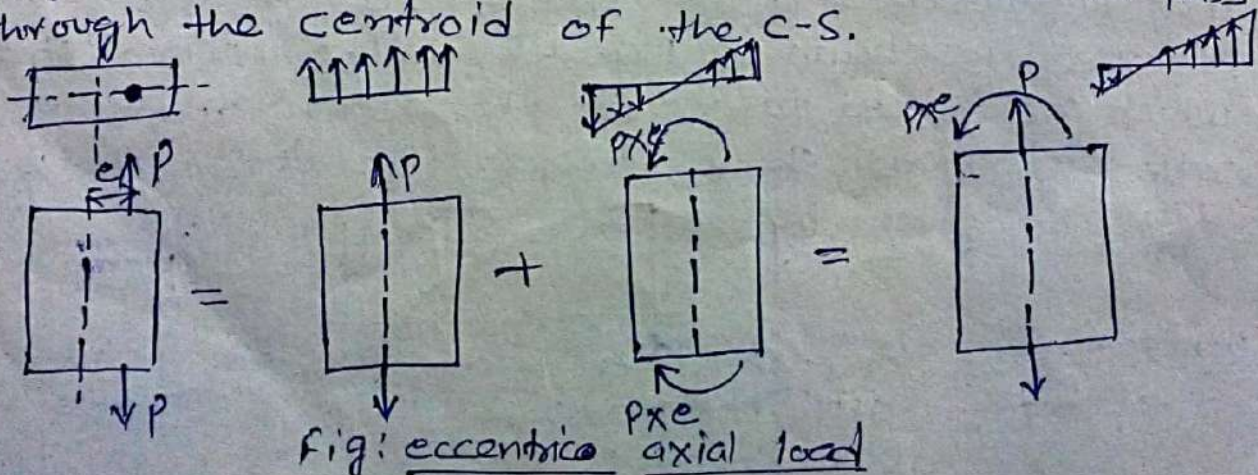 through the centroid of the C-S.
P
e P
P
Pxe
Pxe
= + =
P
Pxe
Fig: eccentrico axial load